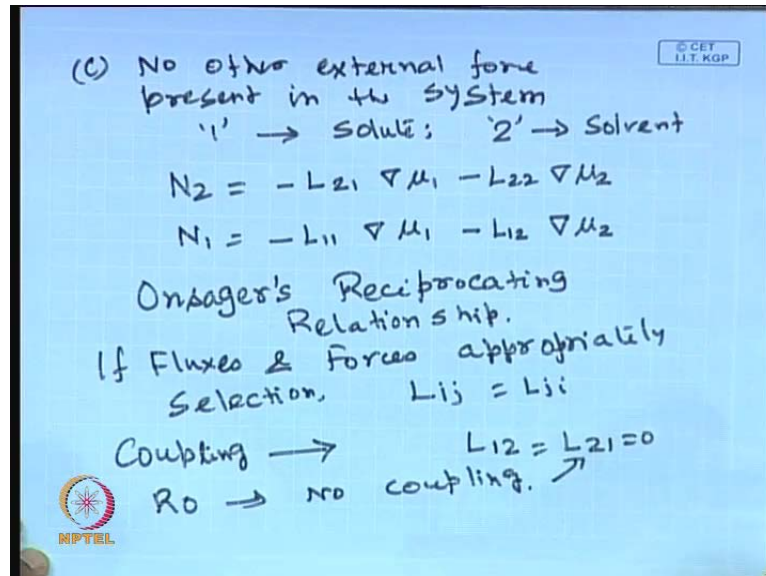 (C) No other external force
present in the system
'1' → Solute; '2' → Solvent
N2 = - L21 ∇μ1 - L22 ∇μ2
N1 = - L11 ∇μ1 - L12 ∇μ2
Onsager's Reciprocating
Relationship.
If Fluxes & Forces appropriately
Selection, Lij = Lji
Coupling → L12 = L21 = 0
RO → NO coupling.
© CET
I.I.T. KGP
NPTEL